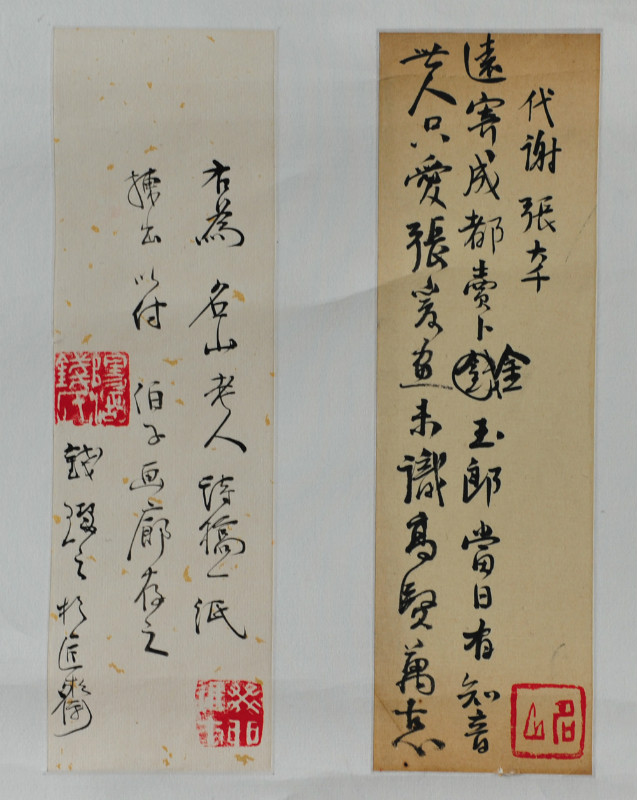 代謝 張大千
遠寄成都賣卜金玉郎當日有知音
世人只愛張爰画未識高賢萬古心
名山
右為 名山老人 詩稿一紙
揀出 以付 伯子画廊存之
錢璱之於